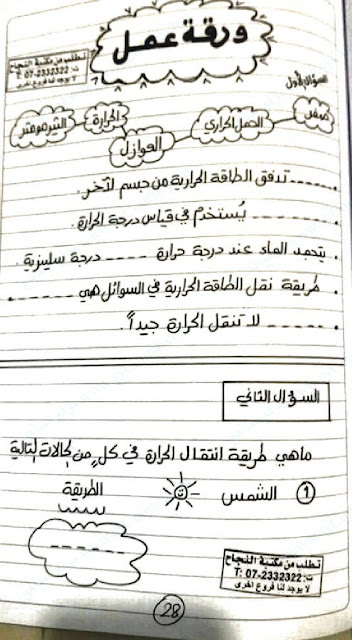 ورقة عمل
تطلب من مكتبة النجاح
ت: 07-2332322 :T
لا يوجد لنا فروع اخرى
السؤال الأول
صفر
الحمل الحراري
العوازل
الحرارة
الثيرمومتر
------ تدفق الطاقة الحرارية من جسم لآخر.
-------- يُستخدم في قياس درجة الحرارة.
يتجمد الماء عند درجة حرارة ---- درجة سليزية.
طريقة نقل الطاقة الحرارية في السوائل هي ------.
------ لا تنقل الحرارة جيداً.
السؤال الثاني
ماهي طريقة انتقال الحرارة في كلٍ من الحالات التالية
1 الشمس
الطريقة
------
تطلب من مكتبة النجاح
ت: 07-2332322 :T
لا يوجد لنا فروع اخرى
28